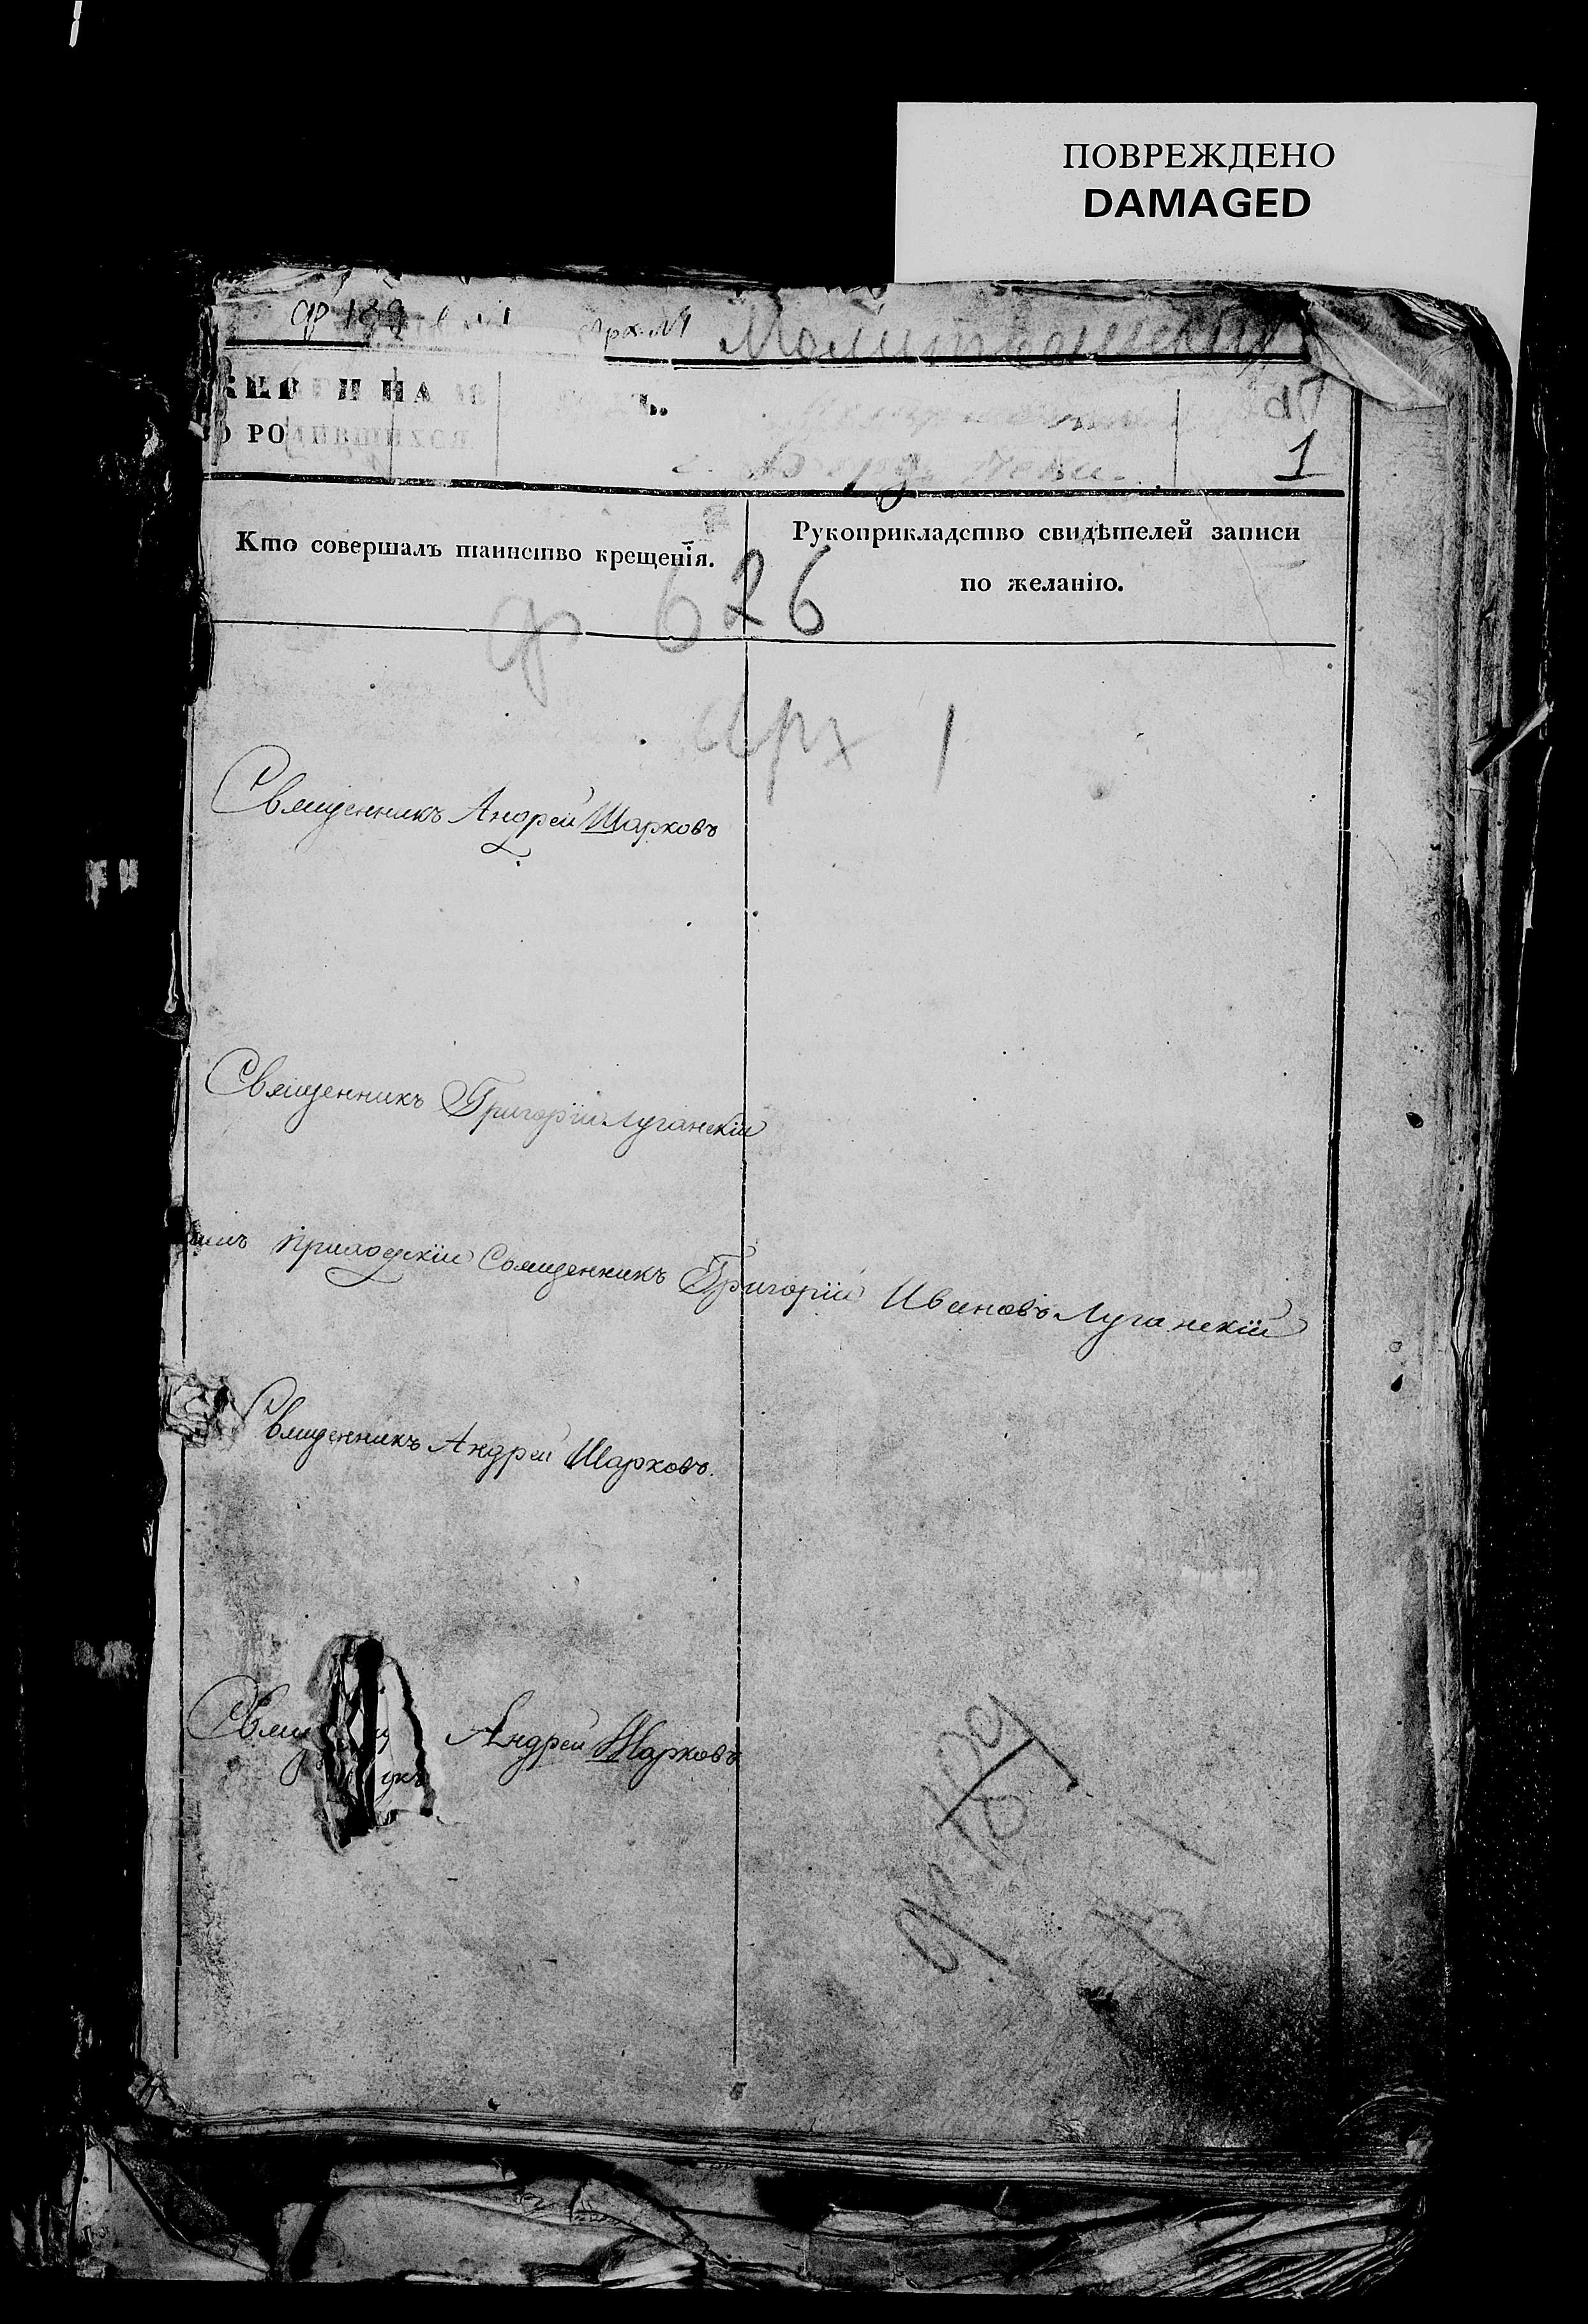 ПОВРЕЖДЕНО
DAMAGED
ф 189
Арх. №1
НА
Ъ.
О РОДИВШИХСЯ
1
Кто совершалъ таинство крещенія.
Рукоприкладство свидѣтелей записи
по желанію.
ф 626
арх 1
Священникъ Андрей Шарковъ
Священникъ Григорій Луганскій
приходскій Священникъ Григорій Ивановъ Луганскій
Священникъ Андрей Шарковъ.
Андрей Шарковъ
ф. 189